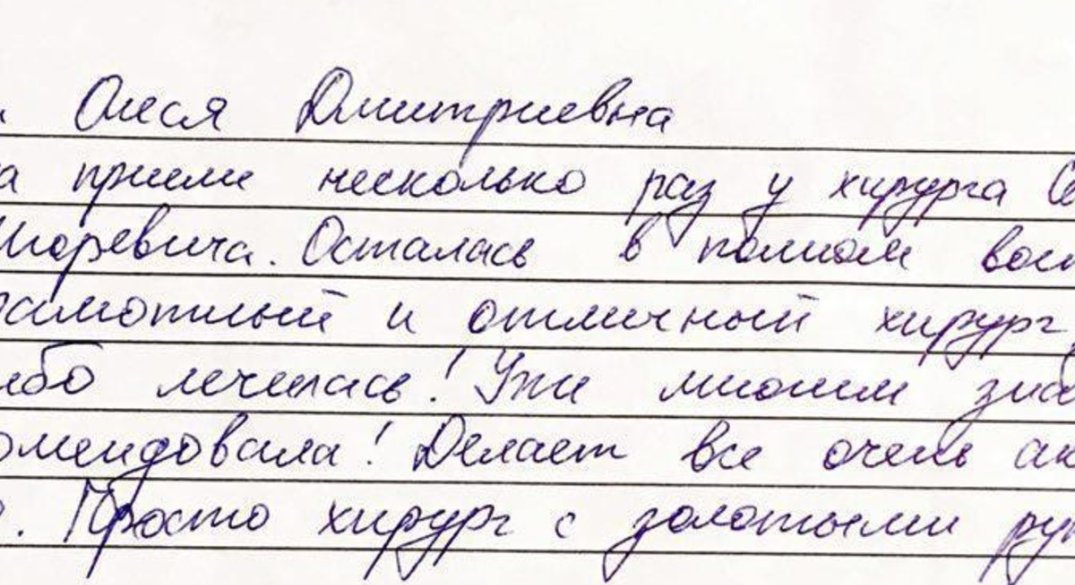 Олеся Дмитриевна
а приеме несколько раз у хирурга Се
Игоревича. Осталась в полном вост
рамотный и отличный хирург,
ибо лечилась! Уже многим знак
омендовала! Делает все очень ак
о. Просто хирург с золотыми рук